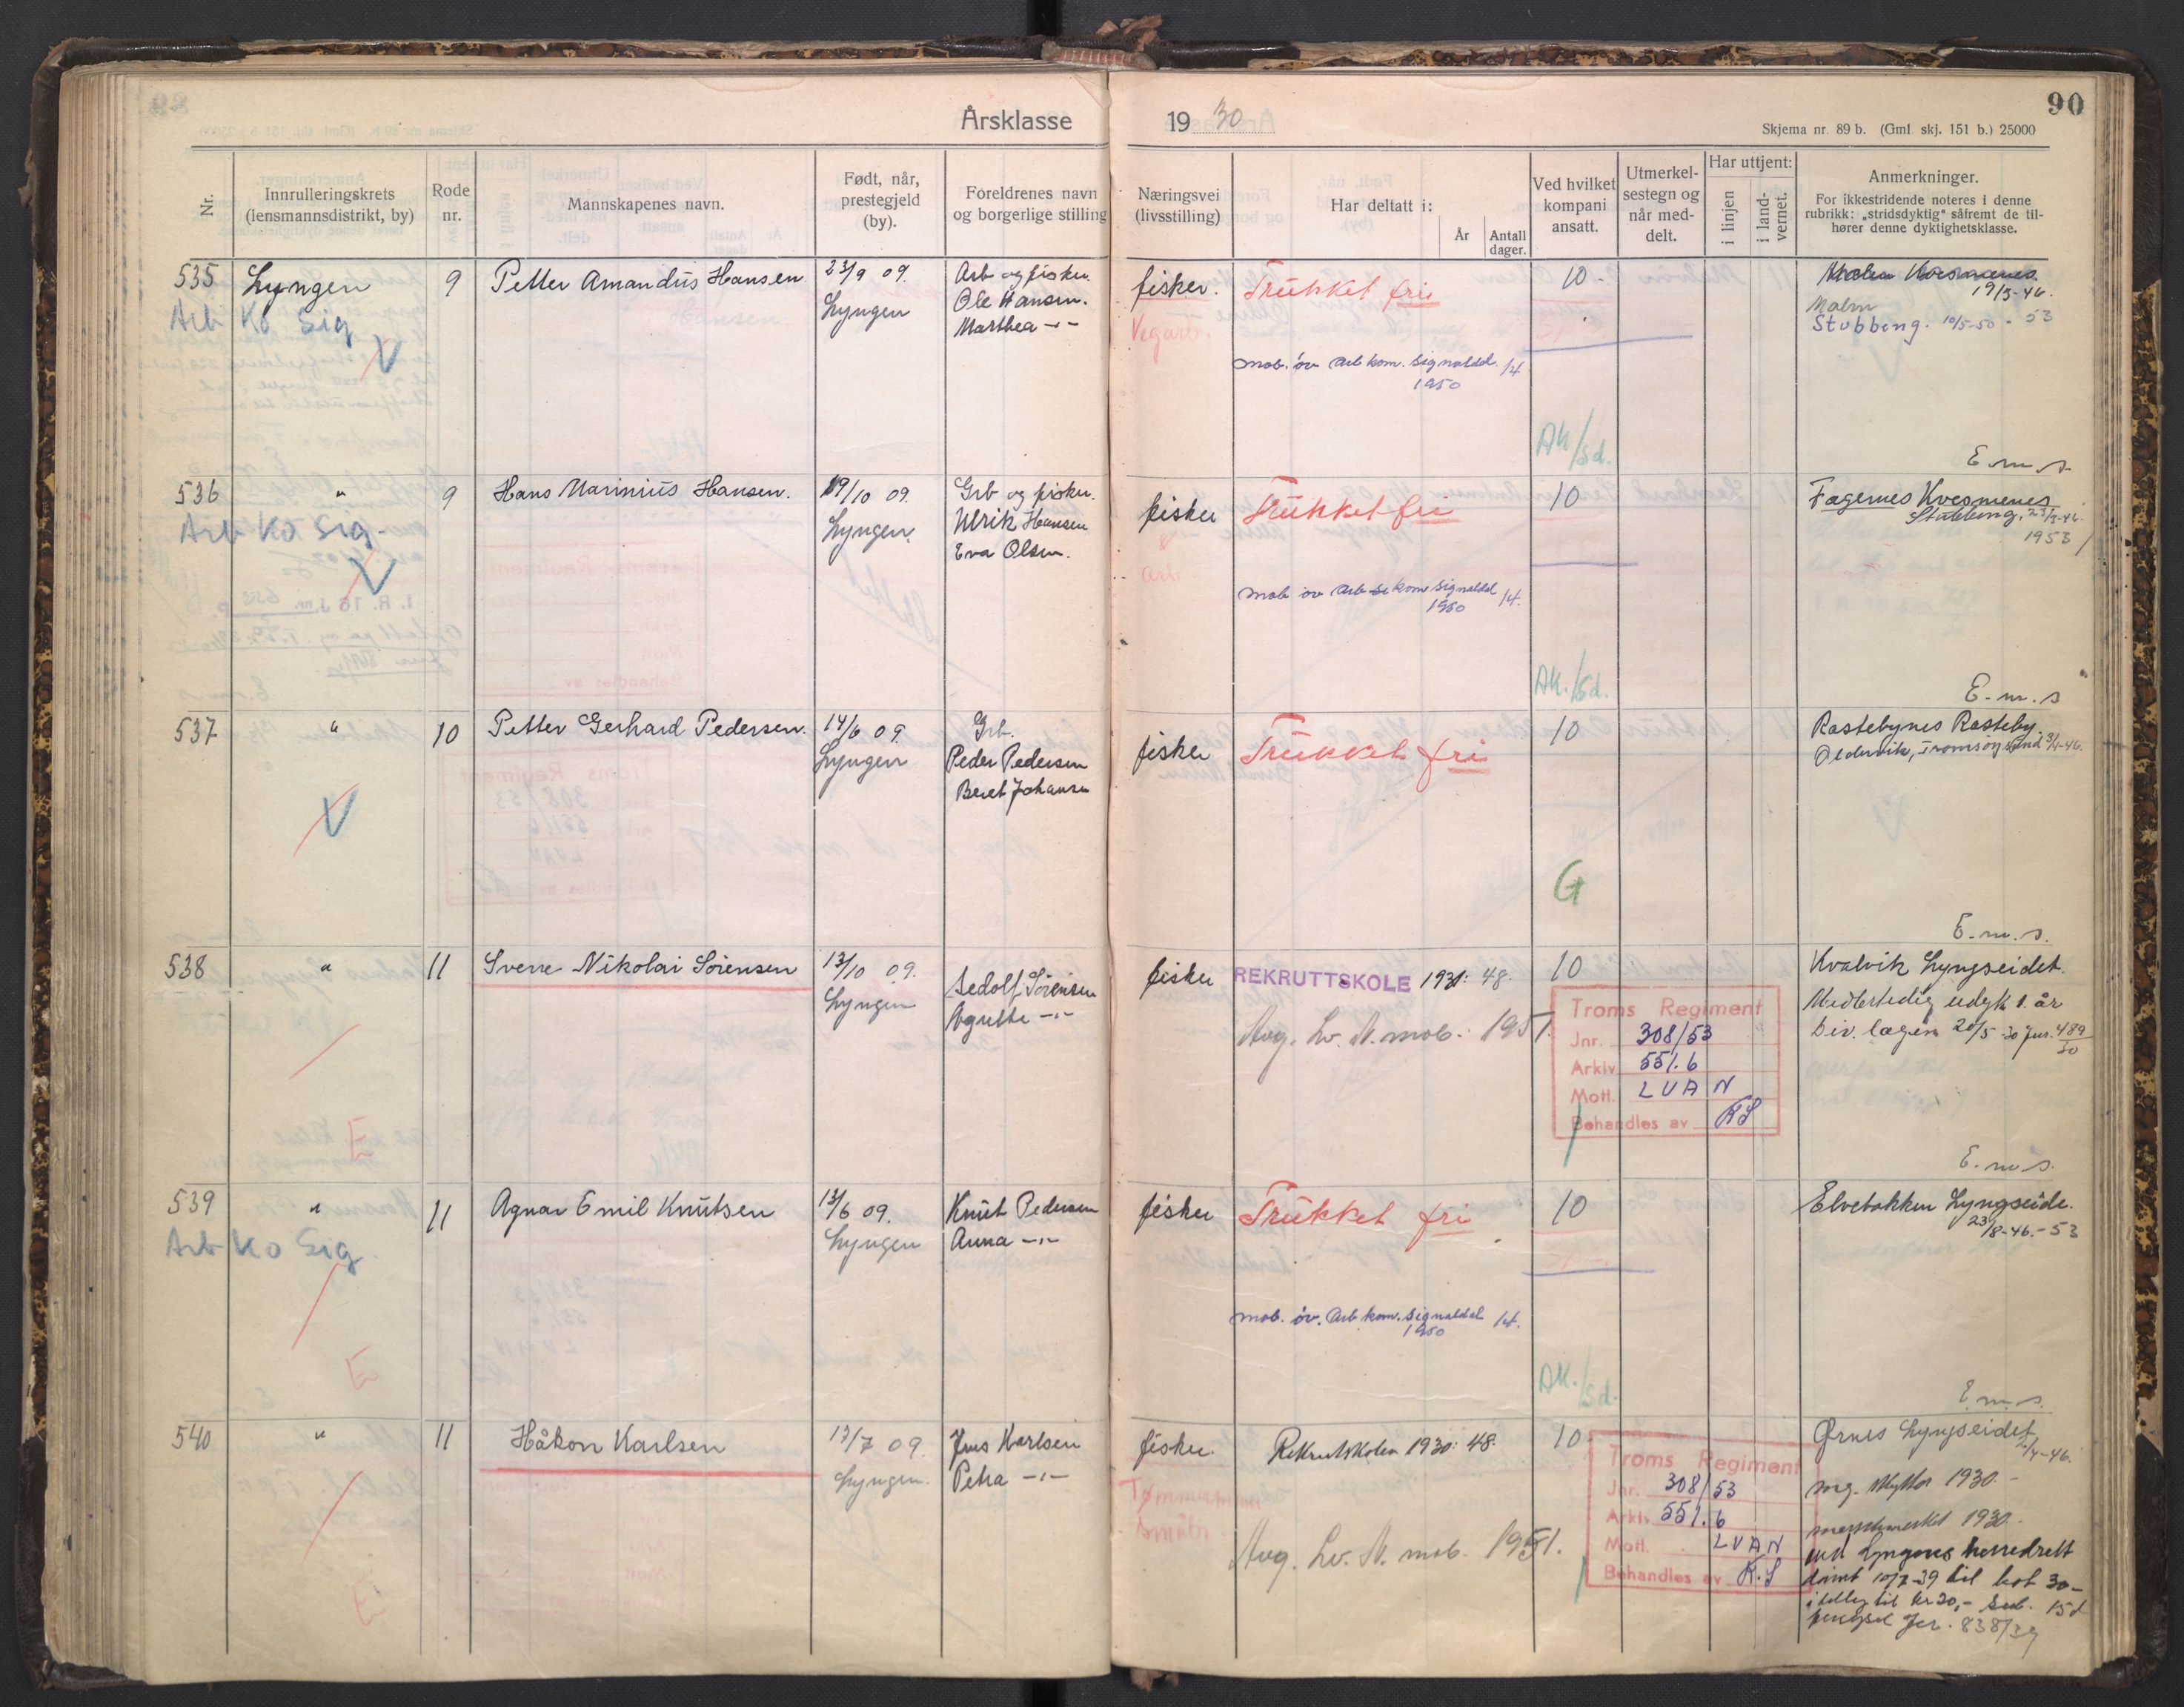 Årsklasse
1930
90
Skjema nr. 89 b. (Gml. skj. 151 b.) 25000
Nr.
Innrulleringskrets (lensmannsdistrikt, by)
Rode nr.
Mannskapenes navn.
Født, når, prestegjeld (by).
Foreldrenes navn og borgerlige stilling
Næringsvei (livsstilling)
Har deltatt i:
År
Antall dager.
Ved hvilket kompani ansatt.
Utmerkel-sestegn og når med-delt.
Har uttjent:
i linjen
i land-vernet.
Anmerkninger.
For ikkestridende noteres i denne rubrikk: „stridsdyktig" såfremt de til-hører denne dyktighetsklasse.
535 Lyngen 9 Petter Amandus Hansen 23/9 09. Arb og fisker. fisker. Trukket fri 10 -
Lyngen Ole Hansen. 19/3-46.
Arb Ko Sig Marthea -"- Vegarb. Malm
V Stubbeng. 10/5-50 - 53
mob. øv Arb kom. Signaldal. 14
1950
AK/Sd.
E.m.s.
536 " 9 Hans Marinius Hansen. 19/10 09. Grb og fisker. fisker Trukket fri 10 Fagernes Kvesmenes
Arb Ko Sig. Lyngen. Ulrik Hansen Stubbeng. 23/3-46.
V Eva Olsen. & arb 1953
mob øv Arb kom Signaldal 14.
1950
AK./Sd.
E.m.s
537 " 10 Petter Gerhard Pedersen. 14/6 09. Grb. fisker Trukket fri 10 Rastebynes Rasteby.
V Lyngen Peder Pedersen Oldervik, Tromsøysund 3/4-46.
Beret Johansen
G
E.m.s.
538 " 11 Sverre Nikolai Sørensen 13/10 09. fisker REKRUTTSKOLE 1931: 48. 10 Kvalvik Lyngseidet.
Lyngen Sedolf Sørensen Midlertidig udyk 1. år
Agnethe -"- Div. lægen 20/5-30 Jnr. 489/30
Avg. Lv. A. mob. 1951.
Troms Regiment
Jnr. 308/53
Arkiv 551.6
Mott. LVAN
Behandles av KS
E
E.m.s.
539 " 11 Agnar Emil Knutsen 13/6 09. Knut Pedersen fisker Trukket fri 10 Elvebakken Lyngseide.
Arb Ko Sig. Lyngen Anna -"- 23/8-46.-53
mob. øv. Arb kom. Signaldal 14.
1950
E
AK./Sd.
E.m.s.
540 " 11 Håkon Karlsen 17/7 09. Jens Karlsen fisker. Rekrutskolen 1930: 48. 10 Ørnes Lyngseidet
Lyngen. Petra -"- 2/4-46.
Tømmermann mg. skytter 1930.-
småbr merkemerket 1930.-
Avg. Lv. A. mob. 1951.
Troms Regiment
Jnr. 308/53
Arkiv 551.6
Mott. LVAN
Behandles av K.S
E
ved Lyngens herredrett
dømt 10/2-39 til bot 30-
i tillegg til kr 20,- sub. 15 d
fengsel Jnr. 838/39